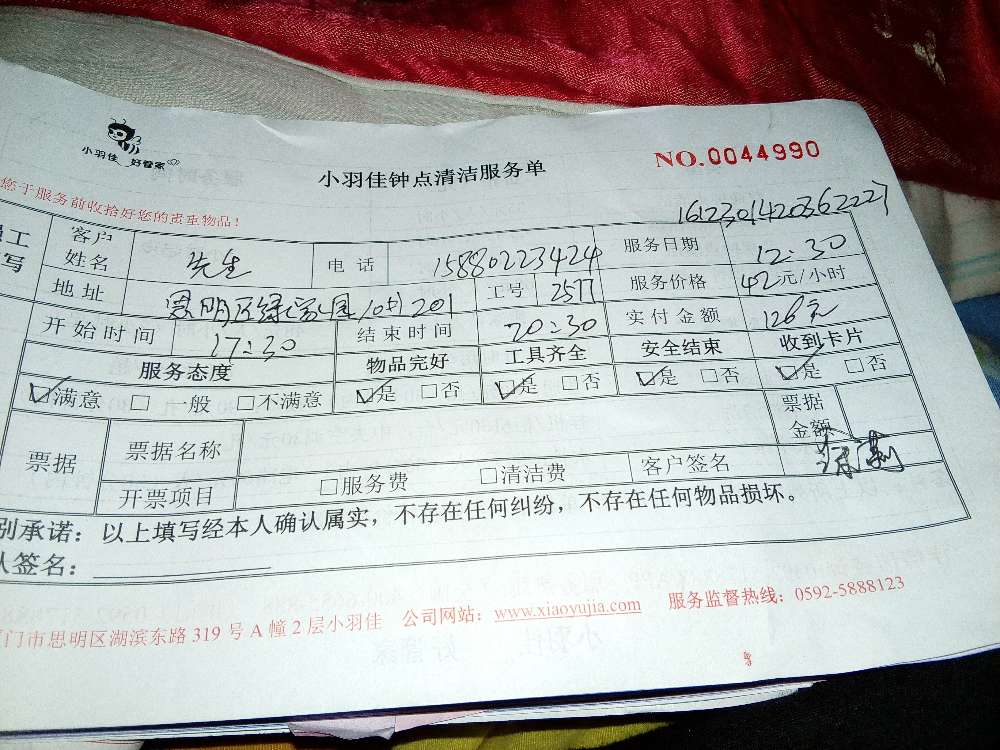 小羽佳 好管家
小羽佳钟点清洁服务单
NO.0044990
您于服务前收拾好您的贵重物品!
161230142036222
工 客户姓名 先生 电话 15880223424 服务日期 12:30
写 地址 思明区绿 园 201 工号 2577 服务价格 42元/小时
开始时间 17:30 结束时间 20:30 实付金额 126元
服务态度 物品完好 工具齐全 安全结束 收到卡片
☑满意 □一般 □不满意 ☑是 □否 ☑是 □否 ☑是 □否 ☑是 □否
票据 票据名称 票据金额
开票项目 □服务费 □清洁费 客户签名
别承诺:以上填写经本人确认属实,不存在任何纠纷,不存在任何物品损坏。
人签名:
门市思明区湖滨东路319号A幢2层小羽佳 公司网站:www.xiaoyujia.com 服务监督热线:0592-5888123